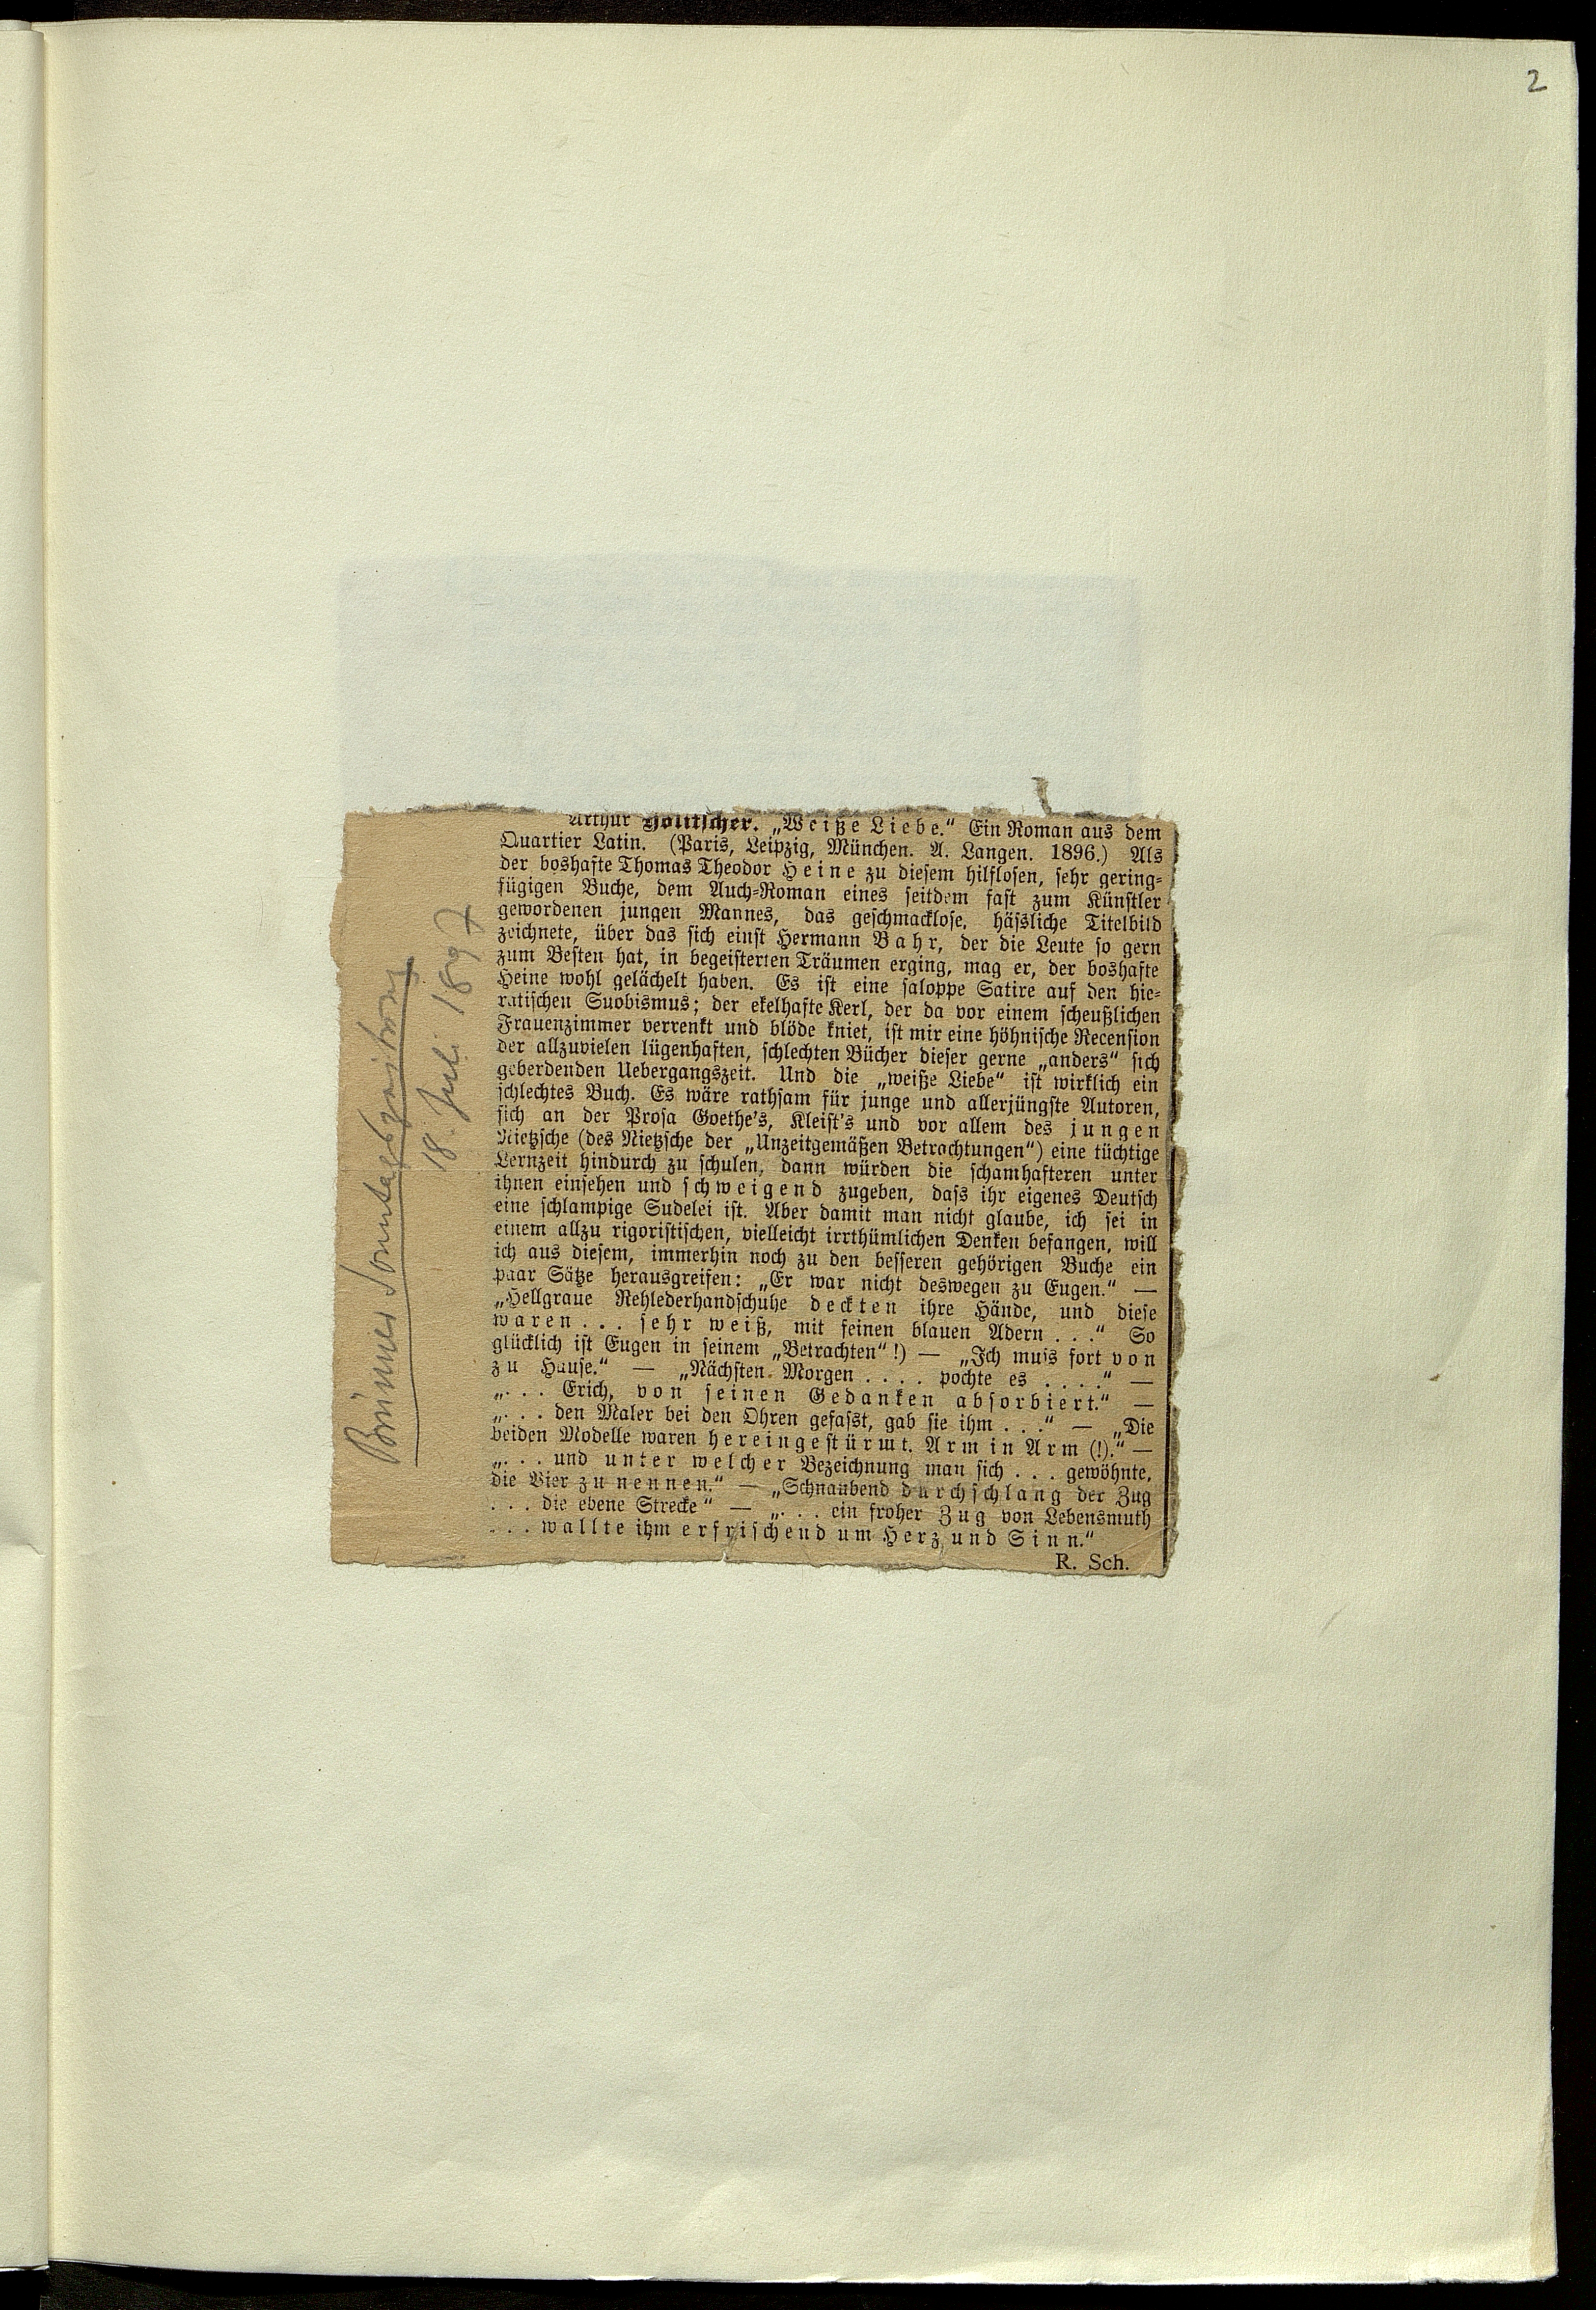 2
Arthur Holitscher. „Weiße Liebe.“ Ein Roman aus dem
Quartier Latin. (Paris, Leipzig, München. A. Langen. 1896.) Als
der boshafte Thomas Theodor Heine zu diesem hilflosen, sehr gering-
fügigen Buche, dem Auch-Roman eines seitdem fast zum Künstler
gewordenen jungen Mannes, das geschmacklose, hässliche Titelbild
zeichnete, über das sich einst Hermann Bahr, der die Leute so gern
zum Besten hat, in begeisterten Träumen erging, mag er, der boshafte
Heine wohl gelächelt haben. Es ist eine saloppe Satire auf den hie-
ratischen Suobismus; der ekelhafte Kerl, der da vor einem scheußlichen
Frauenzimmer verrenkt und blöde kniet, ist mir eine höhnische Recension
der allzuvielen lügenhaften, schlechten Bücher dieser gerne „anders“ sich
geberdenden Uebergangszeit. Und die „weiße Liebe“ ist wirklich ein
schlechtes Buch. Es wäre rathsam für junge und allerjüngste Autoren,
sich an der Prosa Goethe's, Kleist's und vor allem des jungen
Nietzsche (des Nietzsche der „Unzeitgemäßen Betrachtungen“) eine tüchtige
Lernzeit hindurch zu schulen, dann würden die schamhafteren unter
ihnen einsehen und schweigend zugeben, dass ihr eigenes Deutsch
eine schlampige Sudelei ist. Aber damit man nicht glaube, ich sei in
einem allzu rigoristischen, vielleicht irrthümlichen Denken befangen, will
ich aus diesem, immerhin noch zu den besseren gehörigen Buche ein
paar Sätze herausgreifen: „Er war nicht deswegen zu Eugen.“ —
„Hellgraue Rehlederhandschuhe deckten ihre Hände, und diese
waren... sehr weiß, mit feinen blauen Adern...“ So
glücklich ist Eugen in seinem „Betrachten“!) — „Ich muss fort von
zu Hause.“ — „Nächsten Morgen .... pochte es ....“ —
„... Erich, von seinen Gedanken absorbiert.“ —
„... den Maler bei den Ohren gefasst, gab sie ihm ...“ — „Die
beiden Modelle waren hereingestürmt. Arm in Arm (!).“ —
„... und unter welcher Bezeichnung man sich ... gewöhnte,
die Vier zu nennen.“ — „Schnaubend durchschlang der Zug
... die ebene Strecke“ — „... ein froher Zug von Lebensmuth
... wallte ihm erfrischend um Herz und Sinn.“
R. Sch.
Brünner Sonntagszeitung
18. Juli 1897